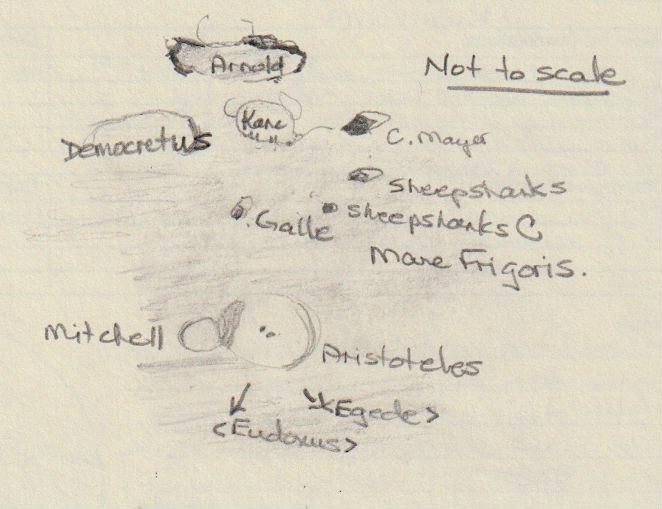 Arnold
Not to scale
Kane
Democretus
C. Mayer
Sheepshanks
Sheepshanks C
Galle
Mare Frigoris.
Mitchell
Aristoteles
<Egede>
<Eudoxus>